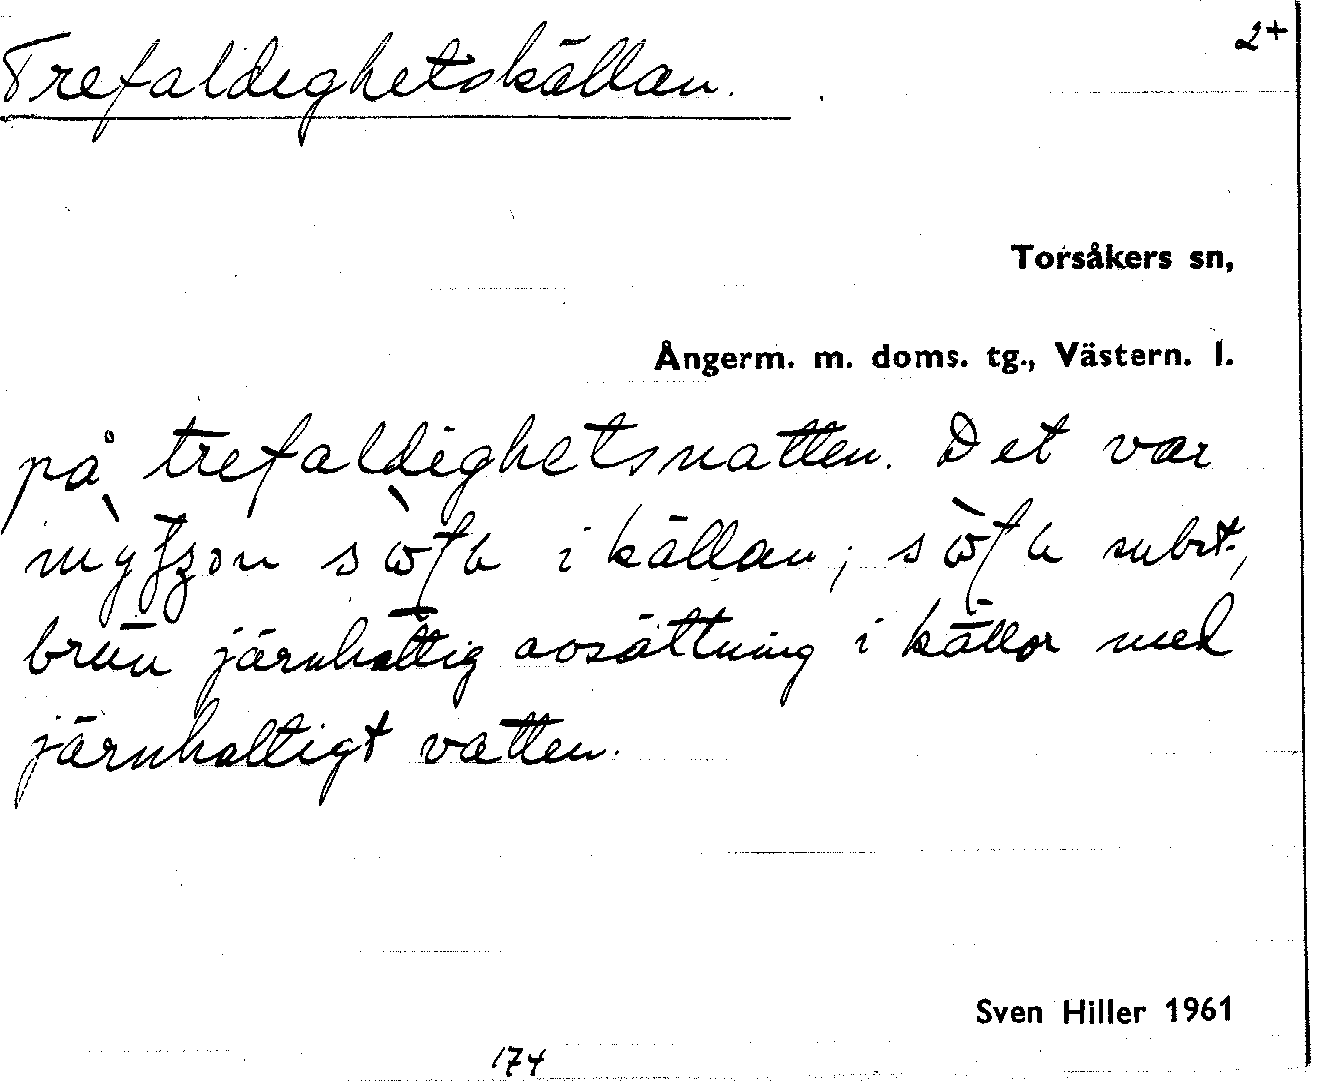 Trefaldighetskällan.
2+
Torsåkers sn,
Ångerm. m. doms. tg., Västern. l.
på trefaldighetsnatten. Det var
i källan; subst.,
brun järnhaltig avsättning i källor med
järnhaltigt vatten.
Sven Hiller 1961
174